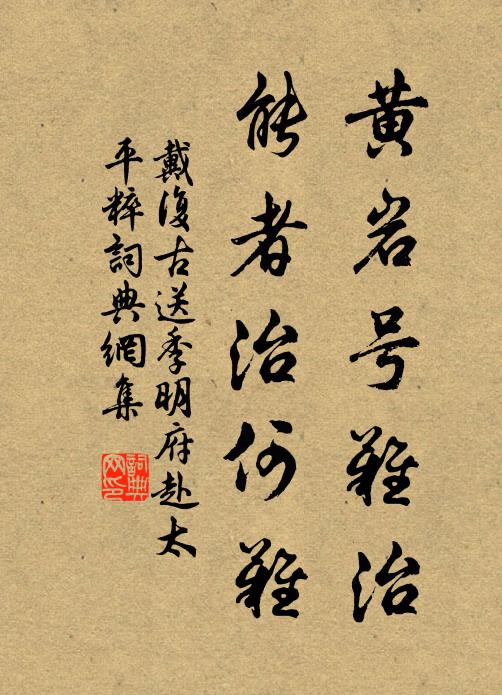 黄岩号难治
能者治何难
戴復古送季明府赴太
平粹詞典網集
詞典
网印